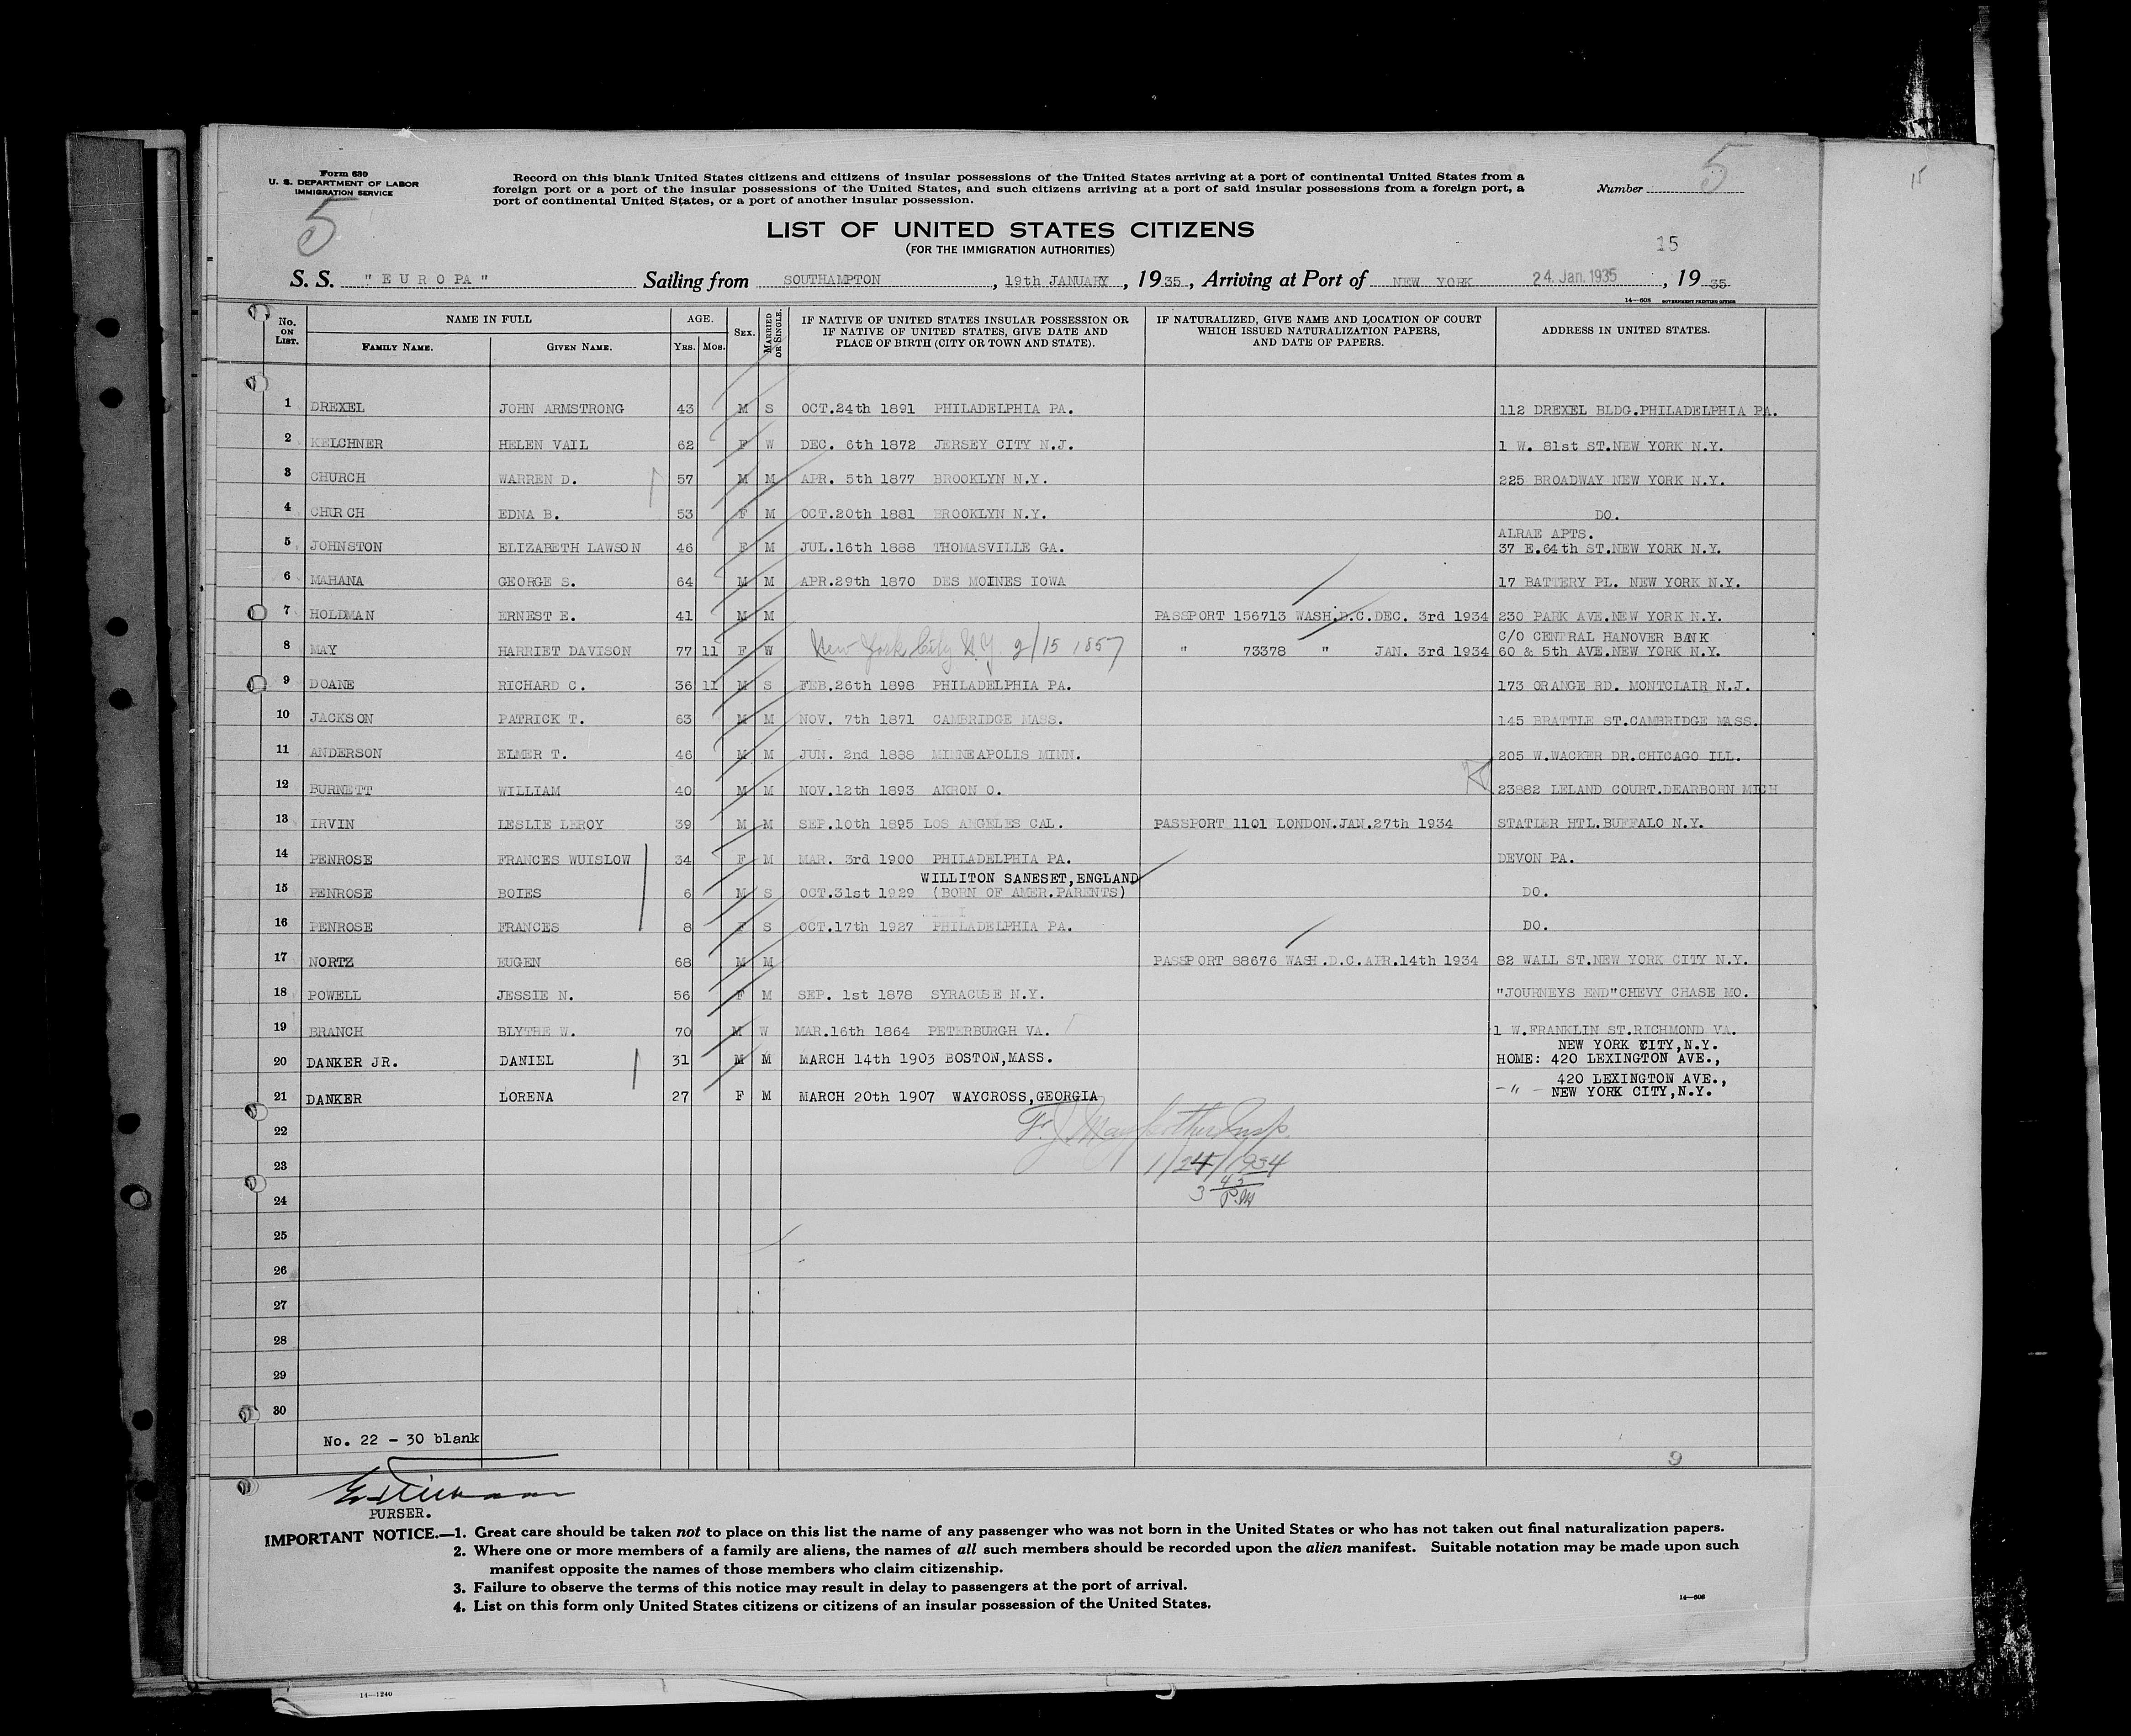 Form 630
U. S. DEPARTMENT OF LABOR
IMMIGRATION SERVICE
5
Record on this blank United States citizens and citizens of insular possessions of the United States arriving at a port of continental United States from a
foreign port or a port of the insular possessions of the United States, and such citizens arriving at a port of said insular possessions from a foreign port, a
port of continental United States, or a port of another insular possession.
Number 5
15
LIST OF UNITED STATES CITIZENS
(FOR THE IMMIGRATION AUTHORITIES)
15
S. S. "EUROPA" Sailing from SOUTHAMPTON, 19th JANUARY, 1935, Arriving at Port of NEW YORK 24. Jan. 1935, 1935
14—608 GOVERNMENT PRINTING OFFICE
No. ON LIST. NAME IN FULL FAMILY NAME. GIVEN NAME. AGE. YRS. MOS. SEX. MARRIED OR SINGLE. IF NATIVE OF UNITED STATES INSULAR POSSESSION OR IF NATIVE OF UNITED STATES, GIVE DATE AND PLACE OF BIRTH (CITY OR TOWN AND STATE). IF NATURALIZED, GIVE NAME AND LOCATION OF COURT WHICH ISSUED NATURALIZATION PAPERS, AND DATE OF PAPERS. ADDRESS IN UNITED STATES.
1 DREXEL JOHN ARMSTRONG 43 M S OCT.24th 1891 PHILADELPHIA PA. 112 DREXEL BLDG.PHILADELPHIA PA.
2 KELCHNER HELEN VAIL 62 F W DEC. 6th 1872 JERSEY CITY N.J. 1 W. 81st ST.NEW YORK N.Y.
3 CHURCH WARREN D. 57 M M APR. 5th 1877 BROOKLYN N.Y. 225 BROADWAY NEW YORK N.Y.
4 CHURCH EDNA B. 53 F M OCT.20th 1881 BROOKLYN N.Y. DO.
5 JOHNSTON ELIZABETH LAWSON 46 F M JUL.16th 1888 THOMASVILLE GA. ALRAE APTS. 37 E.64th ST.NEW YORK N.Y.
6 MAHANA GEORGE S. 64 M M APR.29th 1870 DES MOINES IOWA 17 BATTERY PL. NEW YORK N.Y.
7 HOLDMAN ERNEST E. 41 M M PASSPORT 156713 WASH.D.C.DEC. 3rd 1934 230 PARK AVE.NEW YORK N.Y.
8 MAY HARRIET DAVISON 77 11 F W New York City N.Y. 2/15 1857 " 73378 " JAN. 3rd 1934 C/O CENTRAL HANOVER BANK 60 & 5th AVE.NEW YORK N.Y.
9 DOANE RICHARD C. 36 11 M S FEB.26th 1898 PHILADELPHIA PA. 173 ORANGE RD. MONTCLAIR N.J.
10 JACKSON PATRICK T. 63 M M NOV. 7th 1871 CAMBRIDGE MASS. 145 BRATTLE ST.CAMBRIDGE MASS.
11 ANDERSON ELMER T. 46 M M JUN. 2nd 1888 MINNEAPOLIS MINN. 205 W.WACKER DR.CHICAGO ILL.
12 BURNETT WILLIAM 40 M M NOV.12th 1893 AKRON O. 23882 LELAND COURT.DEARBORN MICH
13 IRVIN LESLIE LEROY 39 M M SEP.10th 1895 LOS ANGELES CAL. PASSPORT 1101 LONDON.JAN.27th 1934 STATLER HTL.BUFFALO N.Y.
14 PENROSE FRANCES WUISLOW 34 F M MAR. 3rd 1900 PHILADELPHIA PA. DEVON PA.
15 PENROSE BOIES 6 M S OCT.31st 1929 WILLITON SANESET,ENGLAND (BORN OF AMER.PARENTS) DO.
16 PENROSE FRANCES 8 F S OCT.17th 1927 PHILADELPHIA PA. DO.
17 NORTZ EUGEN 68 M M PASSPORT 88676 WASH.D.C.APR.14th 1934 82 WALL ST.NEW YORK CITY N.Y.
18 POWELL JESSIE N. 56 F M SEP. 1st 1878 SYRACUSE N.Y. "JOURNEYS END"CHEVY CHASE MO.
19 BRANCH BLYTHE W. 70 M W MAR.16th 1864 PETERBURGH VA. 1 W.FRANKLIN ST.RICHMOND VA.
20 DANKER JR. DANIEL 31 M M MARCH 14th 1903 BOSTON,MASS. NEW YORK CITY,N.Y. HOME: 420 LEXINGTON AVE.,
21 DANKER LORENA 27 F M MARCH 20th 1907 WAYCROSS,GEORGIA 420 LEXINGTON AVE., -"- NEW YORK CITY,N.Y.
22
23 1/24/1934
24 3 45 P.M
25
26
27
28
29
30
No. 22 - 30 blank
9
PURSER.
IMPORTANT NOTICE.—1. Great care should be taken not to place on this list the name of any passenger who was not born in the United States or who has not taken out final naturalization papers.
2. Where one or more members of a family are aliens, the names of all such members should be recorded upon the alien manifest. Suitable notation may be made upon such
manifest opposite the names of those members who claim citizenship.
3. Failure to observe the terms of this notice may result in delay to passengers at the port of arrival.
4. List on this form only United States citizens or citizens of an insular possession of the United States.
14—608
14—1240